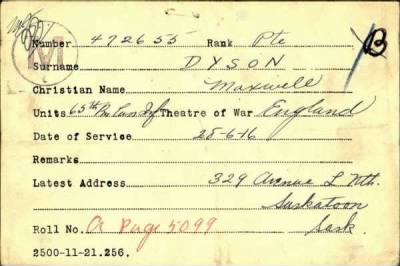 M B
Number 472655 Rank Pte
Surname DYSON
Christian Name Maxwell
Units 65th Bn Can Inf Theatre of War England
Date of Service 28-6-16
Remarks
Latest Address 329 Avenue L Nth.
Saskatoon
Sask.
Roll No. A Page 5099
2500-11-21.256.